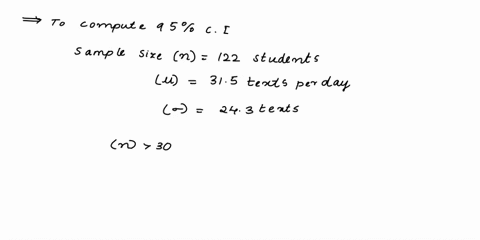 ⇒ To compute 95% C.I
Sample size (n) = 122 students
(μ) = 31.5 texts per day
(σ) = 24.3 texts
(n) > 30